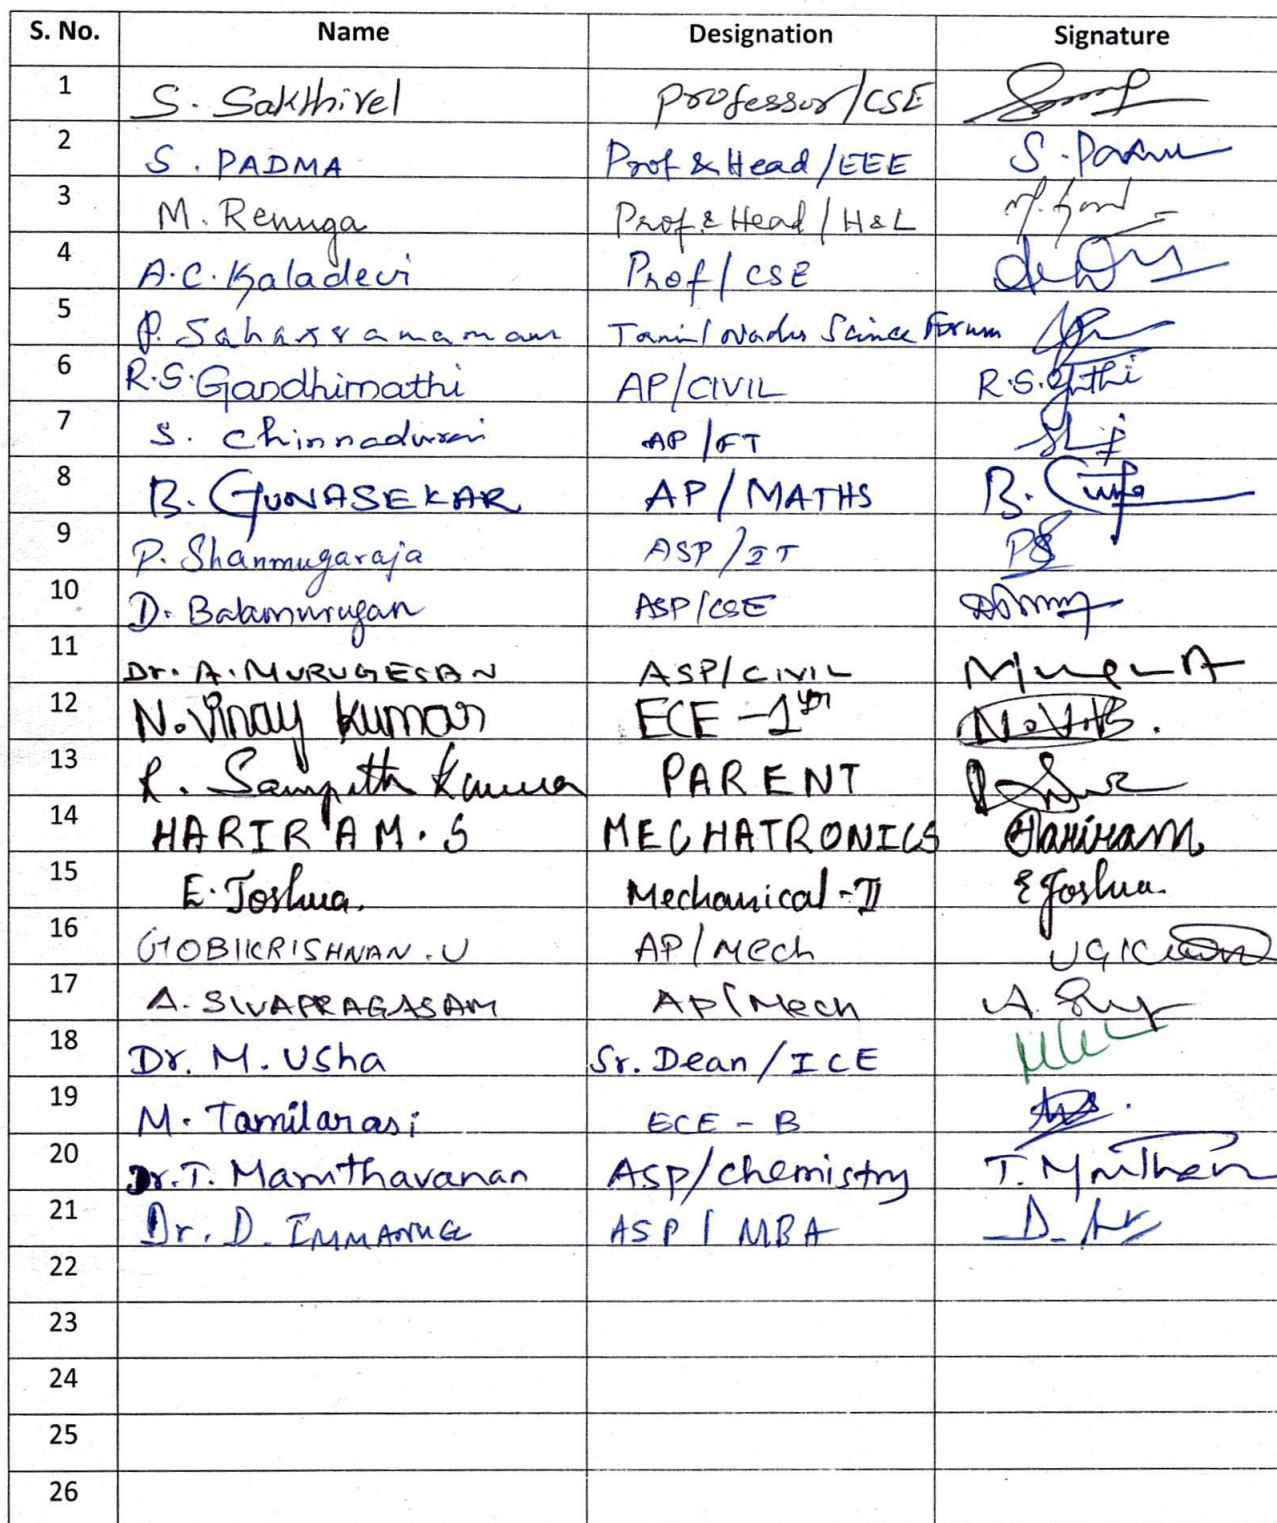 S. No. Name Designation Signature
1 S. Sakthivel Professor/CSE
2 S. PADMA Prof & Head/EEE S. Padma
3 M. Renuga Prof & Head/H&L
4 A.C. Kaladevi Prof/CSE
5 P. Sahasranamam Tamil Nadu Science Forum
6 R.S. Gandhimathi AP/CIVIL R.S.
7 S. Chinnadurai AP/FT
8 B. GUNASEKAR AP/MATHS B.
9 P. Shanmugaraja ASP/IT PS
10 D. Balamurugan ASP/CSE
11 Dr. A. MURUGESAN ASP/CIVIL
12 N. Vinay Kumar ECE - 1 yr
13 R. Sampath Kumar PARENT
14 HARIRAM. S MECHATRONICS Hariram
15 E. Joshua. Mechanical - II E Joshua.
16 GOBIKRISHNAN. U AP/Mech
17 A. SIVAPRAGASAM AP/Mech A.
18 Dr. M. Usha Sr. Dean/ICE
19 M. Tamilarasi ECE - B
20 Dr. T. Maruthavanan Asp/chemistry T.
21 Dr. D. ASP/MBA D.
22
23
24
25
26